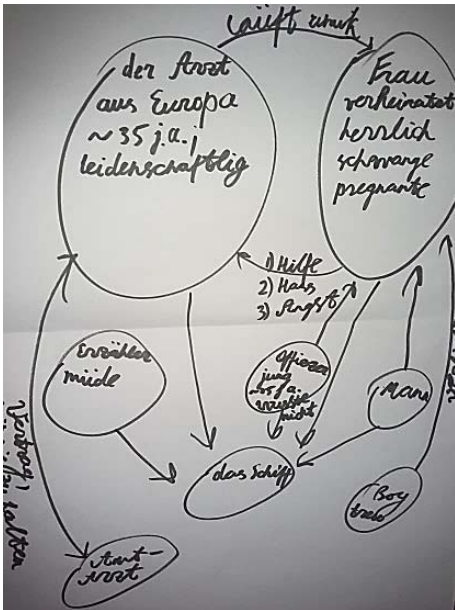 läuft zurück
der Arzt
aus Europa
~35 j.a.j
leidenschaftlig
Frau
verheiratet
herrlich
schwange
pregnante
1) Hilfe
2) Hass
3) Angst
Erzähler
müde
Offizier
jung
~25 j.a.
wusste
nicht
Mann
das Schiff
Boy
treu
Vertrag,
halten
Amt-
Arzt